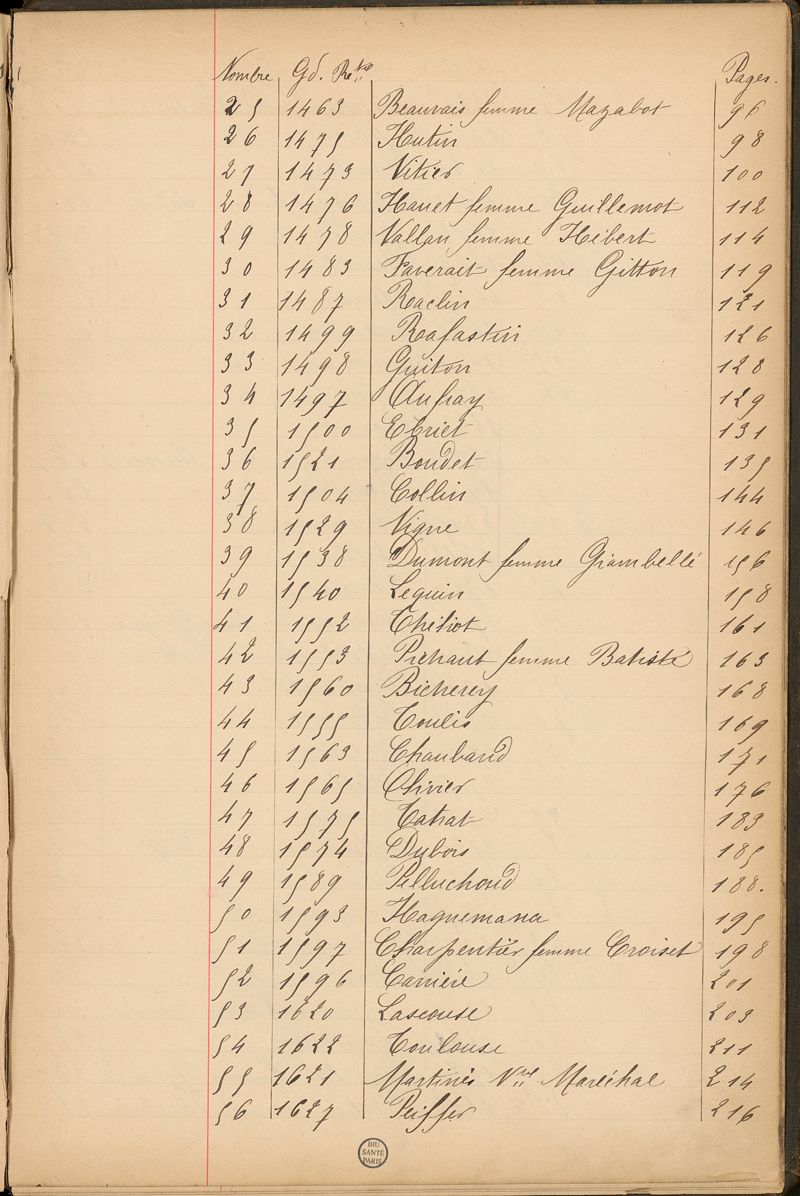 Nombre Gd. Pages.
25 1463 Beauvais femme Mazabot 96
26 1475 Hutin 98
27 1473 Vitier 100
28 1476 Hanet femme Guillemot 112
29 1478 Vallan femme Hébert 114
30 1483 Faverait femme Gitton 119
31 1487 Raclin 121
32 1499 Rafastin 126
33 1498 Guiton 128
34 1497 Aufray 129
35 1500 Ebriet 131
36 1521 Boudet 135
37 1504 Collin 144
38 1529 Vigne 146
39 1538 Dumont femme Giambellé 156
40 1540 Lequin 158
41 1552 Théliot 161
42 1553 Pichaut femme Batiste 163
43 1560 Bicherey 168
44 1555 Toulis 169
45 1563 Chauband 171
46 1565 Olivier 176
47 1575 Catrat 183
48 1574 Dubois 185
49 1589 Pelluchoud 188.
50 1593 Haguemann 195
51 1597 Charpentier femme Croiset 198
52 1596 Carrière 201
53 1620 Lascouse 203
54 1622 Toulouse 211
55 1621 Martinès Vve Maréchal 214
56 1627 Peiffer 216
BIU
SANTÉ
PARIS